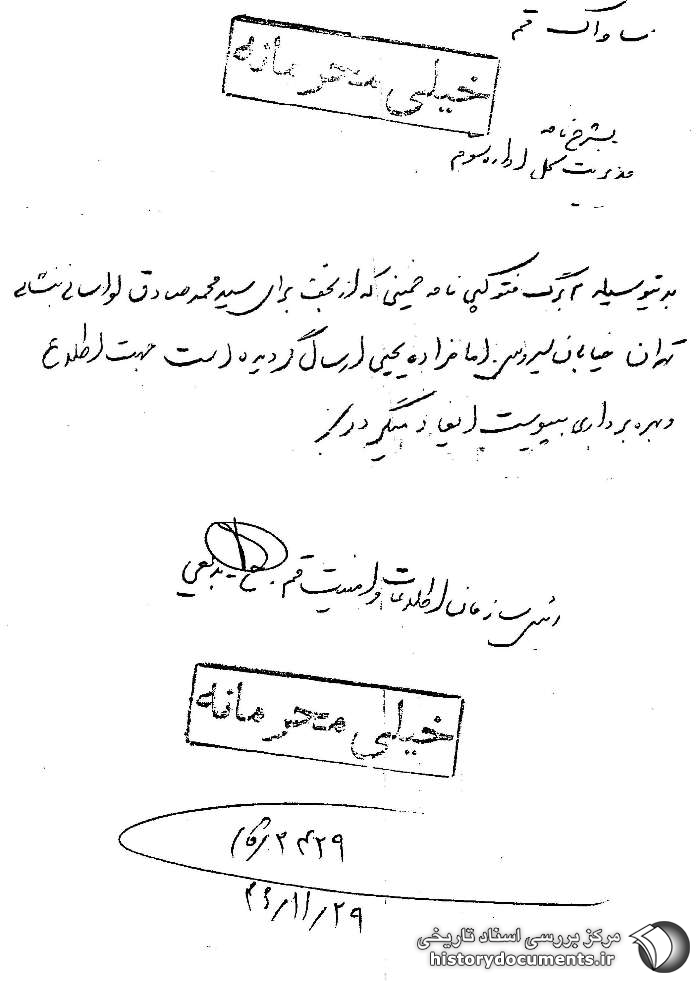 ساواک قم
خیلی محرمانه
بشرح نامه
مدیریت کل اداره سوم
بدینوسیله ۲ برگ فتوکپی نامه خمینی که از نجف برای سید محمد صادق لواسانی بنشانی
تهران خیابان سیروس امامزاده یحیی ارسال گردیده است جهت اطلاع
و بهره برداری بپیوست ایفاد میگردد
رئیس سازمان اطلاعات و امنیت قم بدیعی
خیلی محرمانه
۲۴۲۹
۴۶/۱۱/۲۹
مرکز بررسی اسناد تاریخی
historydocuments.ir